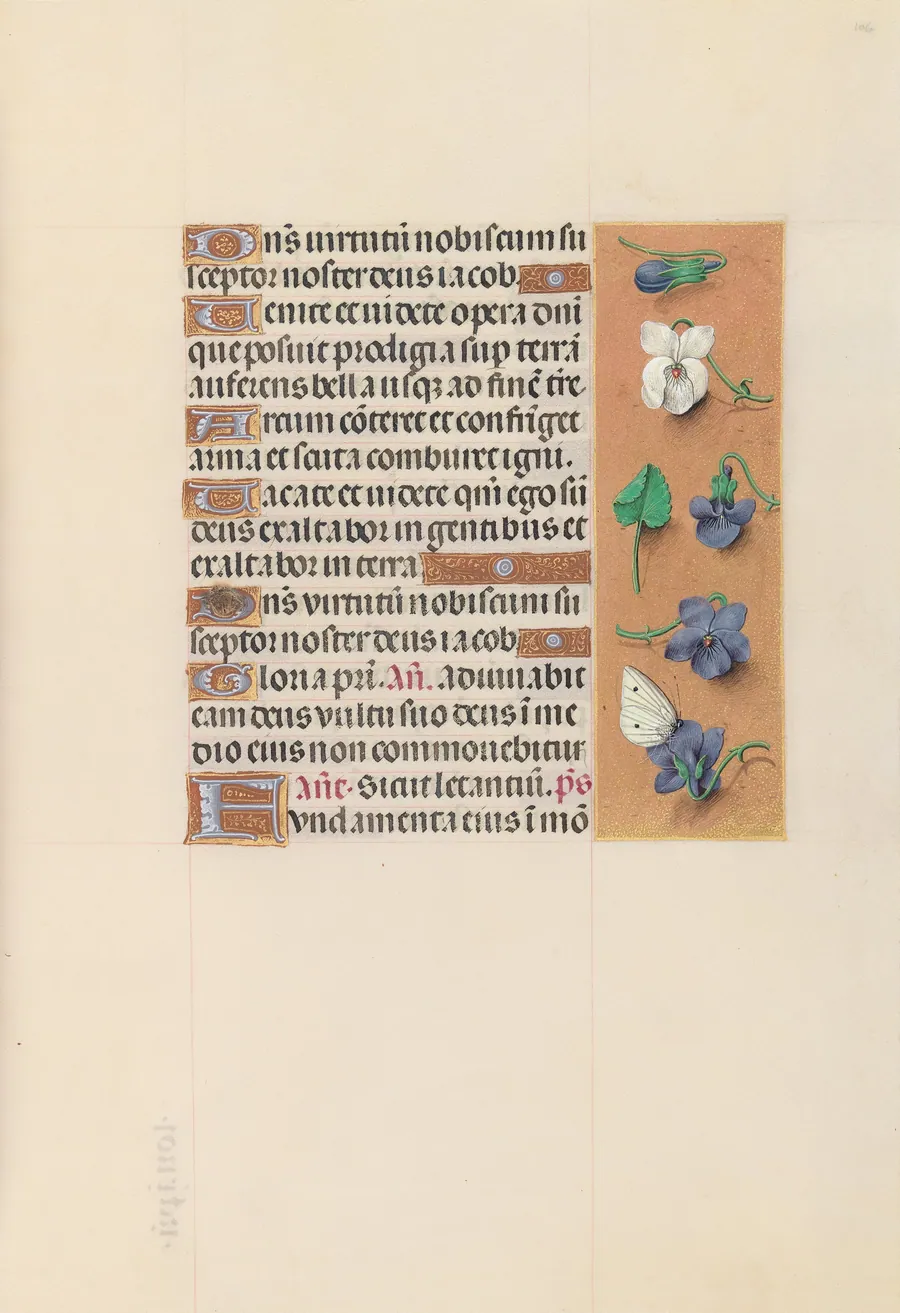 Dn̄s uirtutū nobiscum su
sceptor noster deus iacob.
Uenite et uidete opera dnī
que posuit prodigia sup terrā
auferens bella usqꝫ ad finē tr̄e
Arcum cōteret et confrīget
arma et scuta comburet igni.
Uacate et uidete qm̄ ego sū
deus exaltabor in gentibus et
exaltabor in terra
Dn̄s virtutū nobiscum su
sceptor noster deus iacob.
Gloria pr̄i. An̄. Adiuuabit
eam deus vultu suo deus ī me
dio eius non commouebitur
An̄e. Sicut letantiū. ps̄
Fundamenta eius ī mō